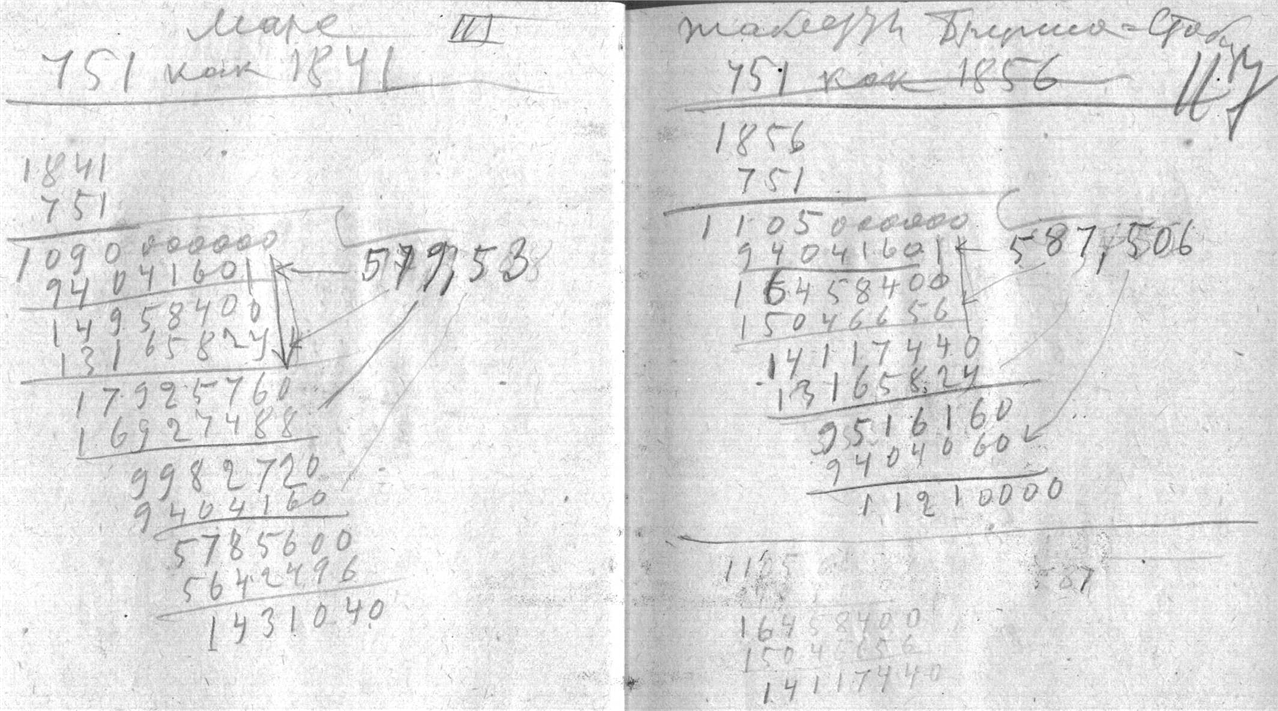 Маре III
751 как 1841
1841
751
1090000000
94041601
14958400
13165824
17925760
16927488
9982720
9404160
5785600
5642496
1431040
579,53
751 как 1856
117
1856
751
1105000000
94041601
16458400
15046656
14117440
13165824
9516160
9404060
11210000
587,506
1105
587
16458400
15046656
14117440